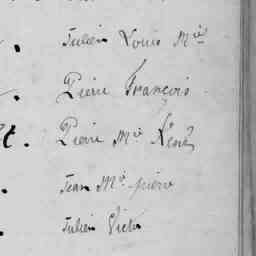 Julien Louis Mie
Pierre François
Pierre Me René
Jean Me pierre
Julien Victor